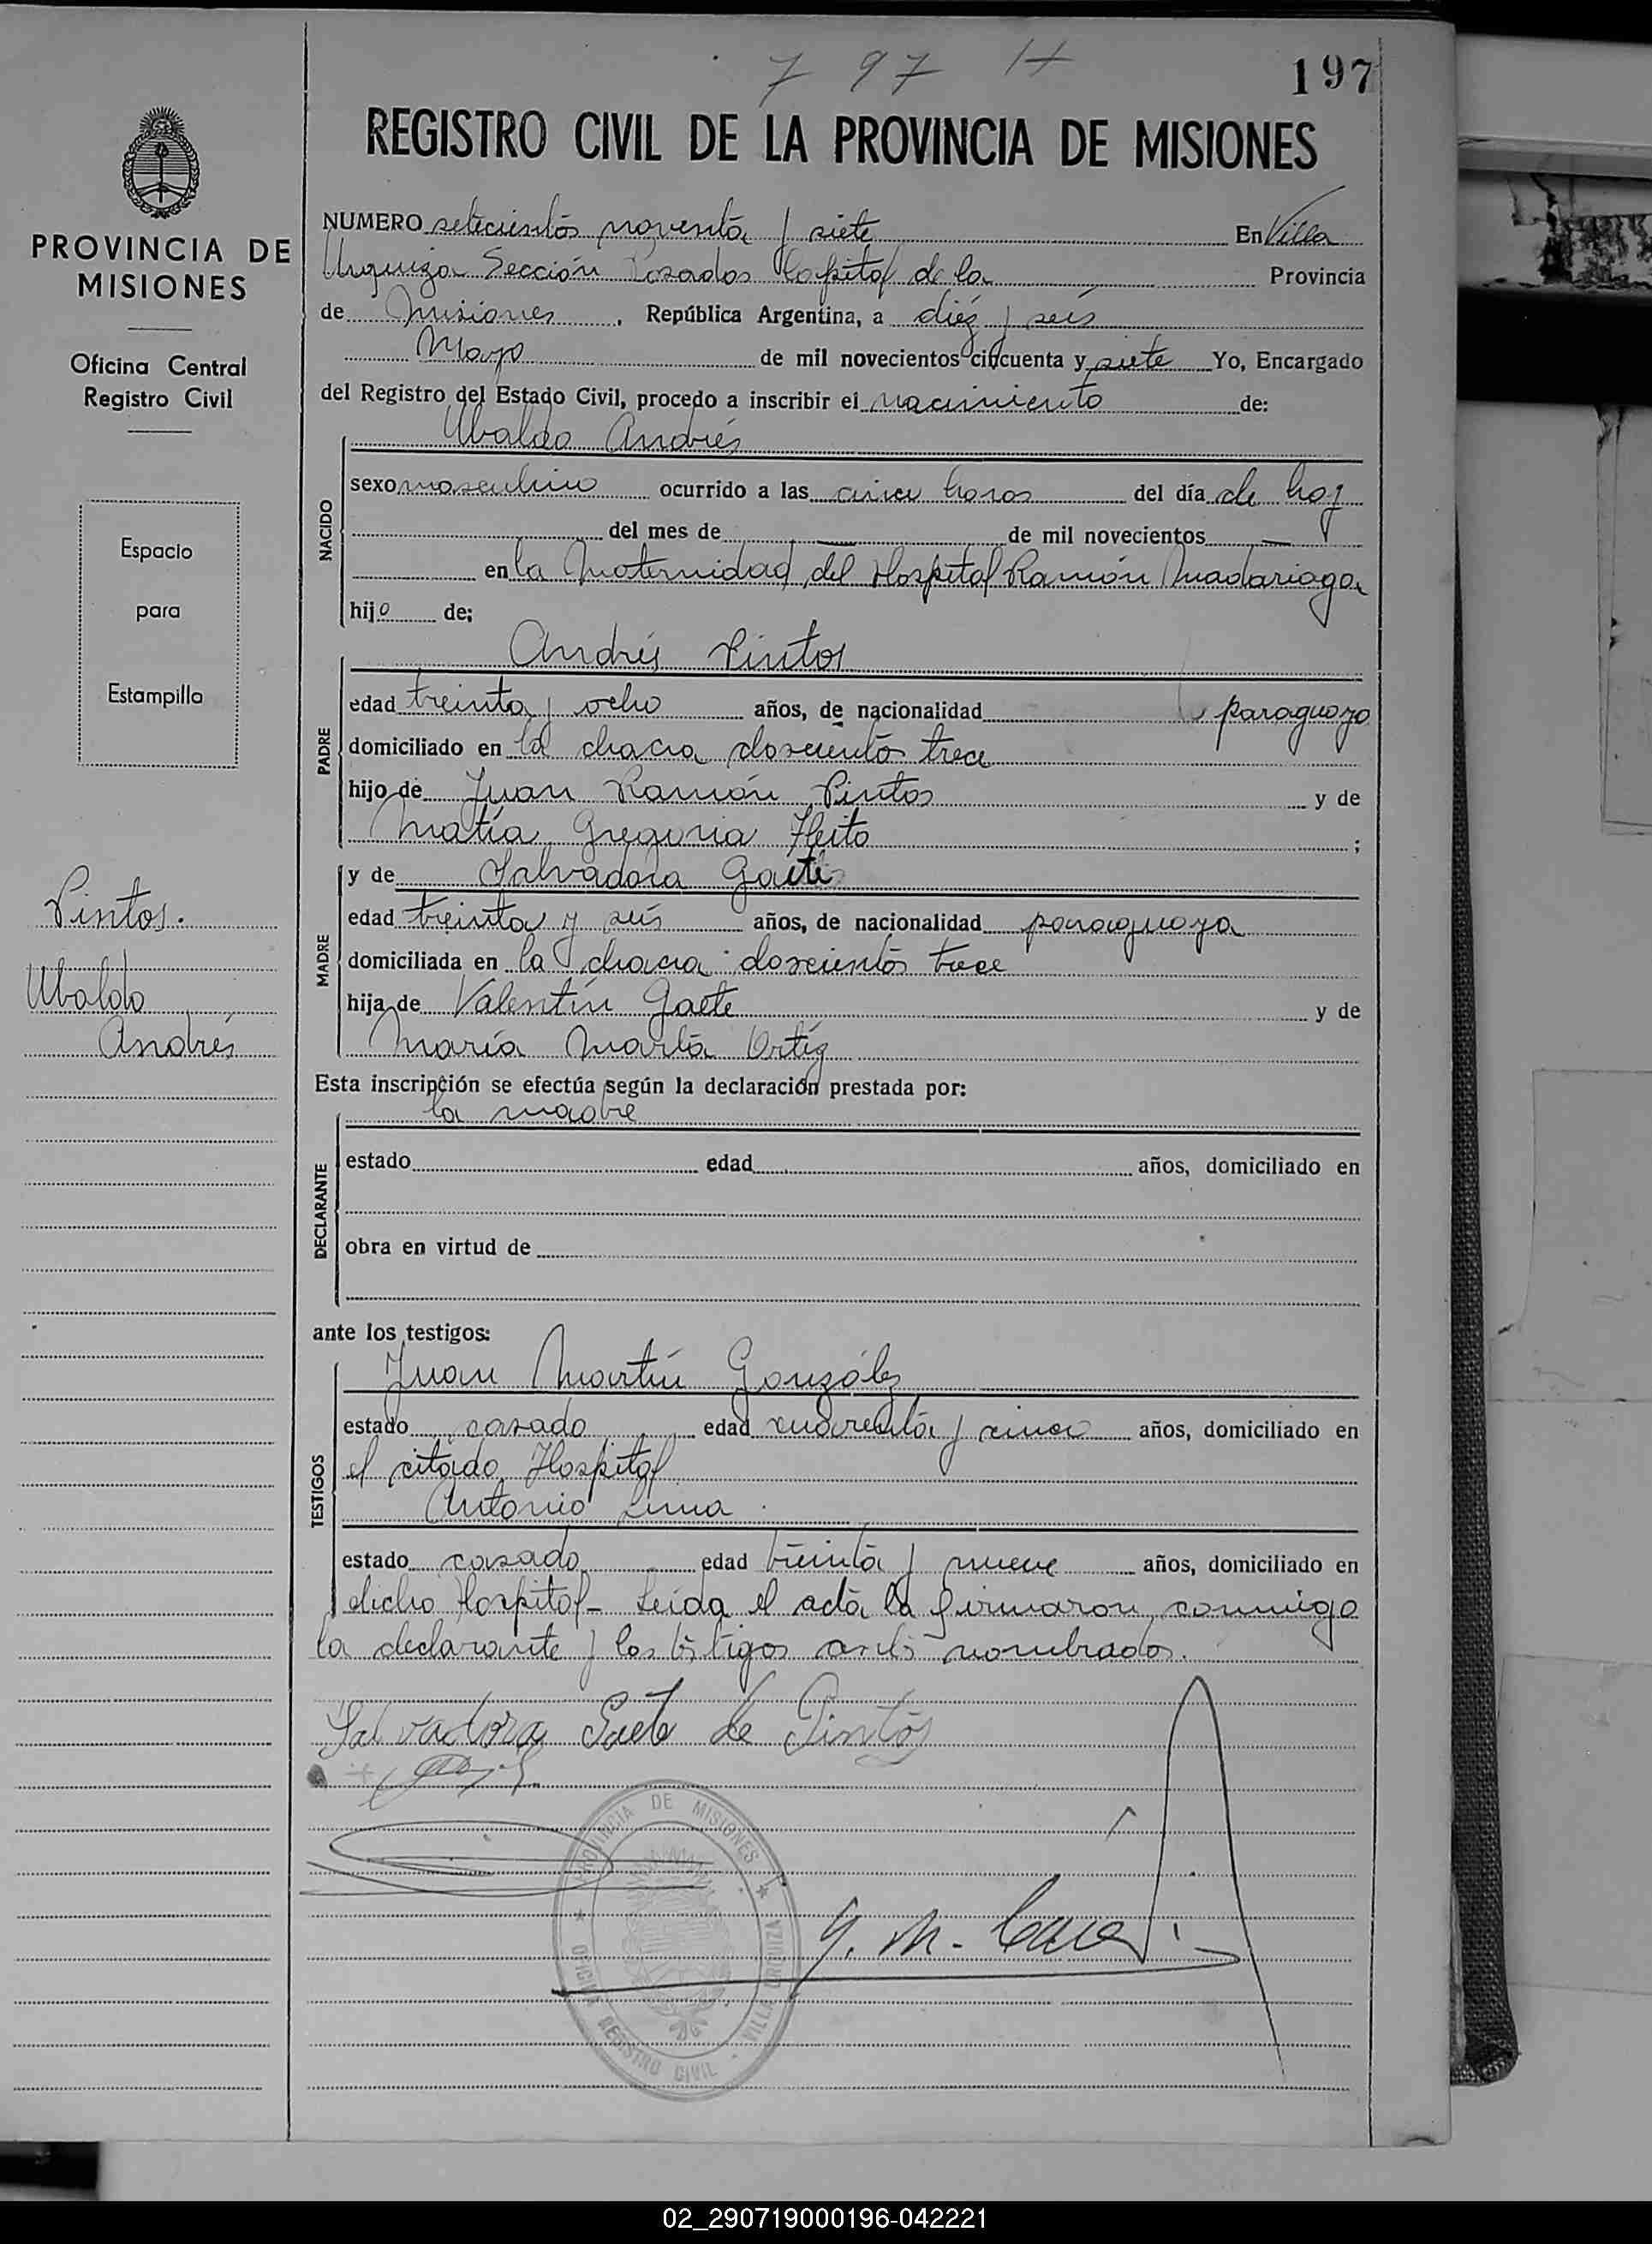 797 H
197
REGISTRO CIVIL DE LA PROVINCIA DE MISIONES
PROVINCIA DE
MISIONES
Oficina Central
Registro Civil
Espacio
para
Estampilla
Pintos.
Ubaldo
Andrés
NUMERO setecientos noventa y siete En Villa
Urquiza Sección Posadas Hospital de la Provincia
de Misiones, República Argentina, a diéz y seis
Mayo de mil novecientos cincuenta y siete Yo, Encargado
del Registro del Estado Civil, procedo a inscribir el nacimiento de:
Ubaldo Andrés
NACIDO
sexo masculino ocurrido a las cinco horas del día de hoy
del mes de — de mil novecientos —
en la Maternidad del Hospital Ramón Madariaga
hijo de:
Andrés Pintos
PADRE
edad treinta y ocho años, de nacionalidad paraguayo
domiciliado en la chacra doscientos trece
hijo de Juan Ramón Pintos y de
María Gregoria ;
y de Salvadora Gaete
MADRE
edad treinta y seis años, de nacionalidad paraguaya
domiciliada en la chacra doscientos trece
hija de Valentín Gaete y de
María Marta Ortíz
Esta inscripción se efectúa según la declaración prestada por:
la madre
DECLARANTE
estado edad años, domiciliado en
obra en virtud de
ante los testigos:
Juan Martín González
TESTIGOS
estado casado edad cuarenta y cinco años, domiciliado en
el citado Hospital
Antonio Lima
estado casado edad treinta y nueve años, domiciliado en
dicho Hospital - Leída el acta la firmaron conmigo
la declarante y los testigos antes nombrados.
Salvadora Gaete de Pintos
PROVINCIA DE MISIONES
OFICINA REGISTRO CIVIL - VILLA URQUIZA
02_290719000196-042221